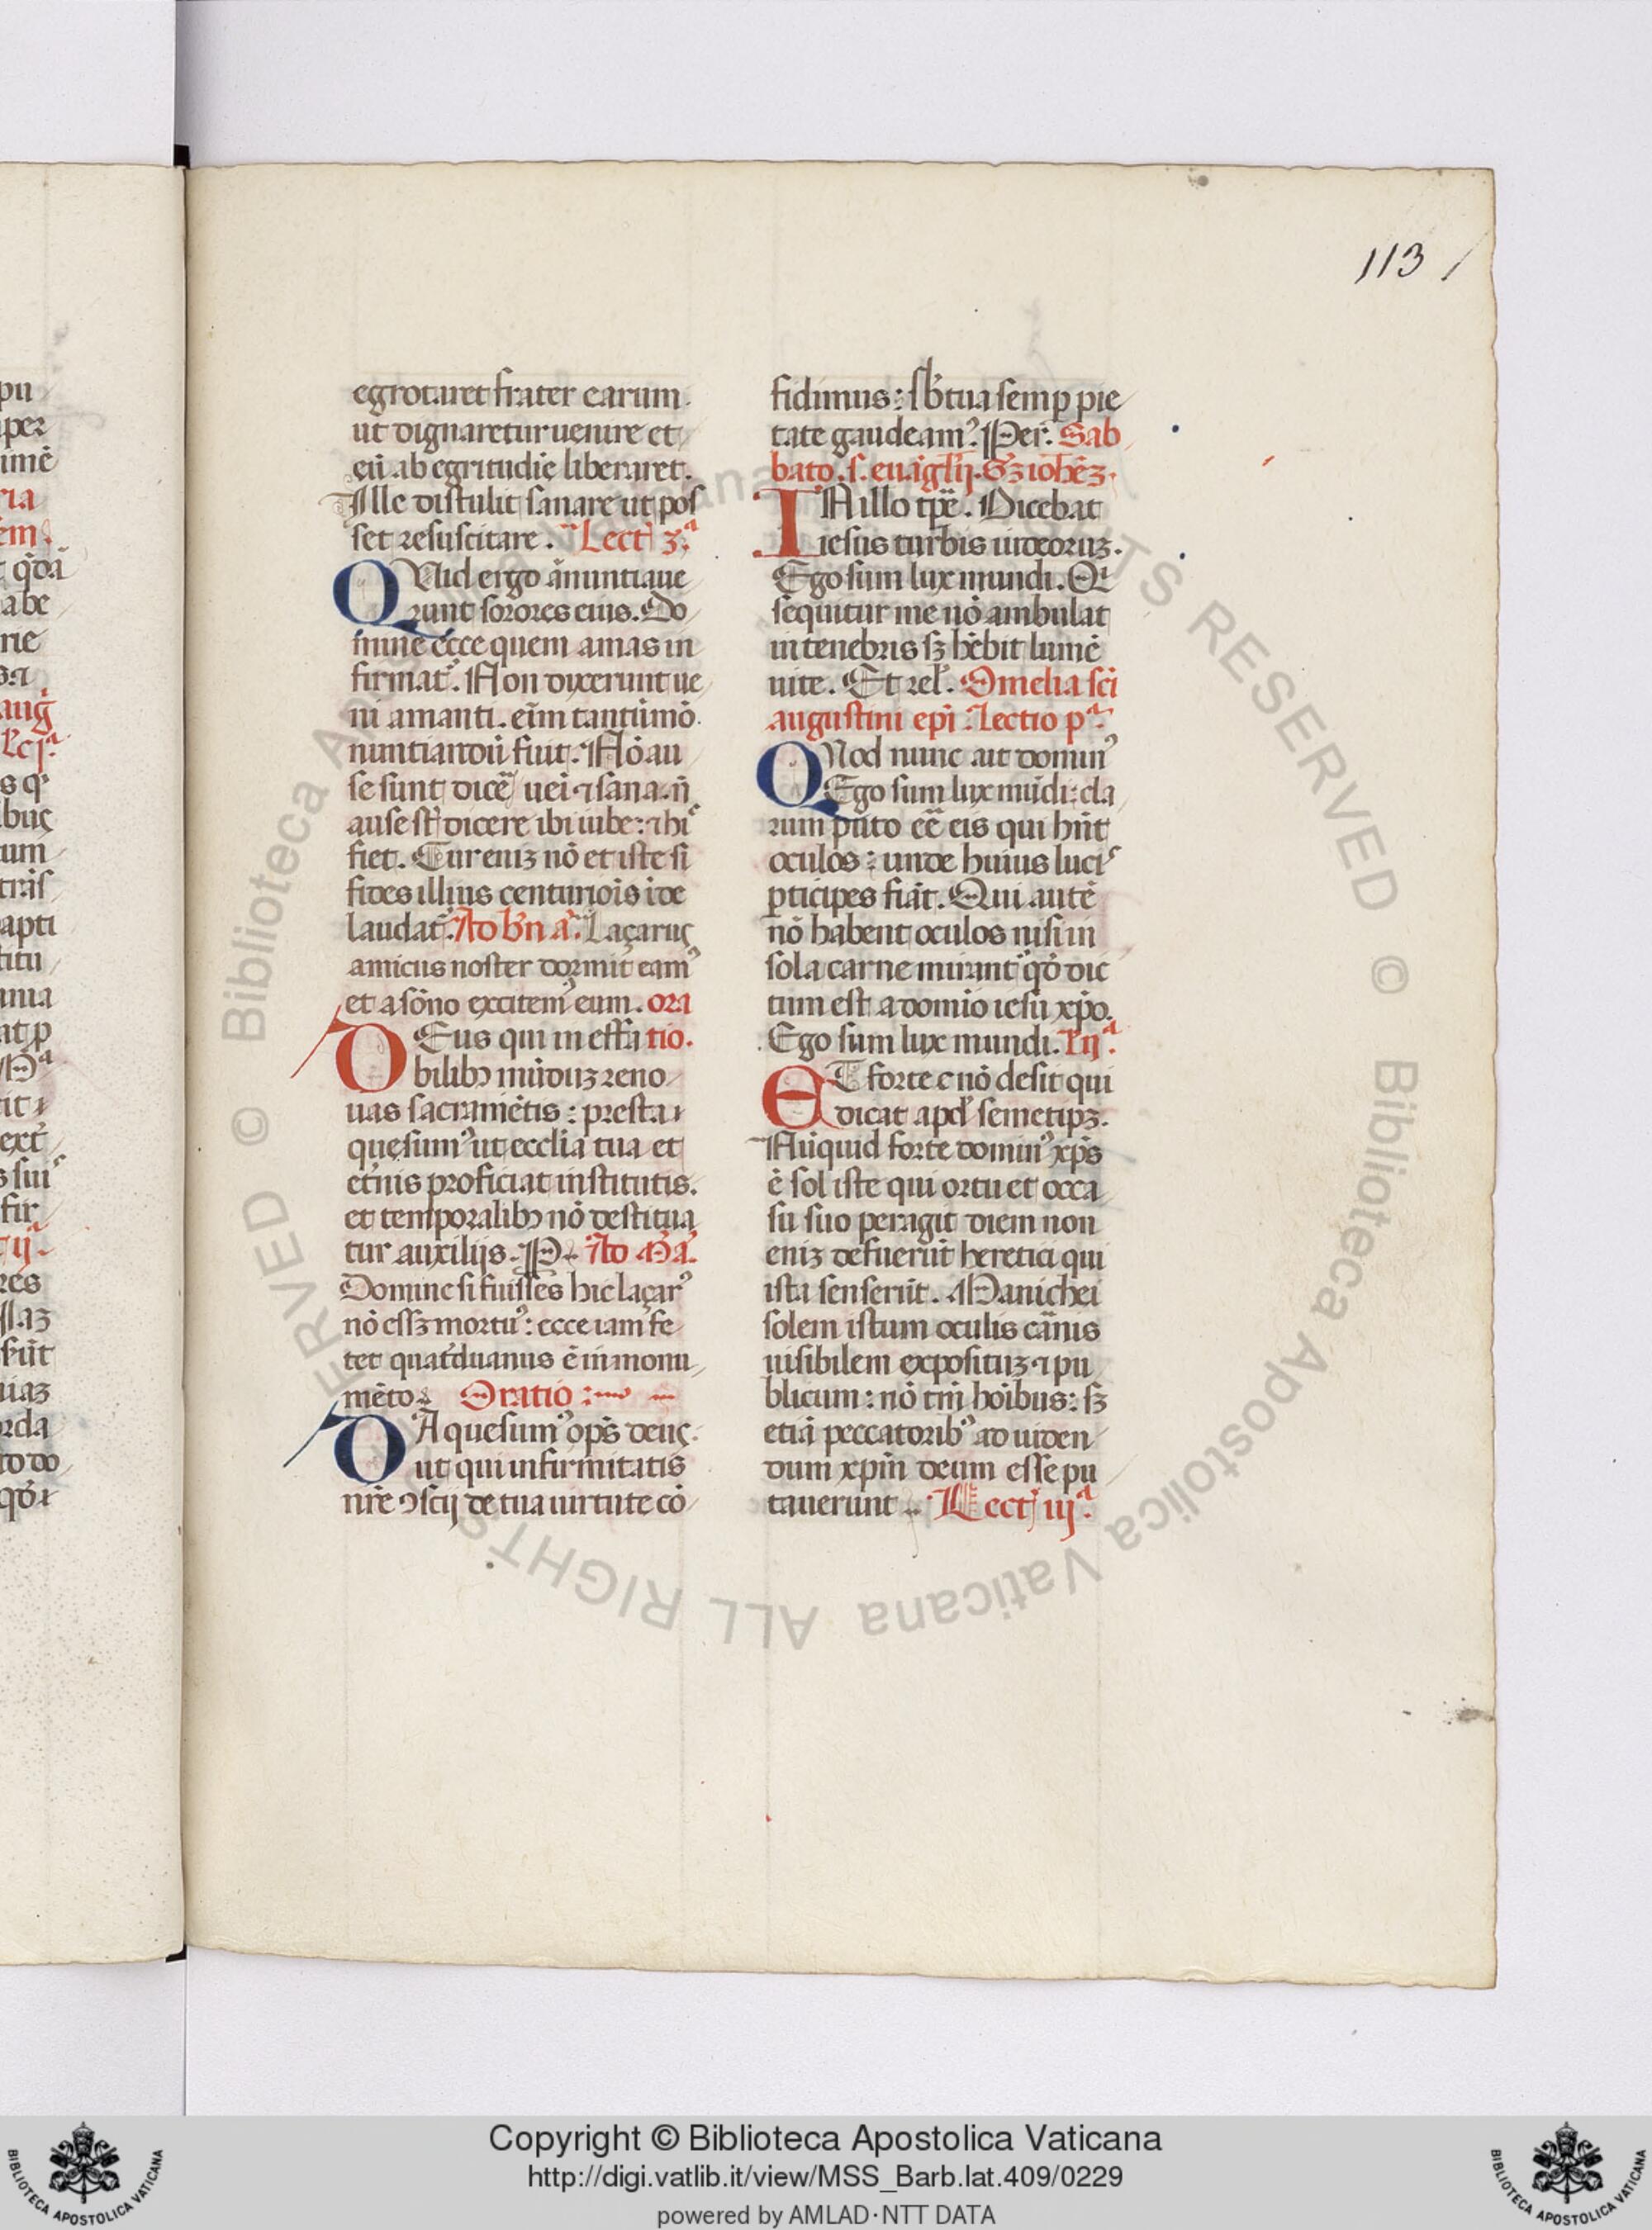 113
egrotaret frater earum.
ut dignaretur uenire et
eū ab egritudīe liberaret.
Ille distulit sanare ut pos
set resuscitare. Lect̄ 3ª
QVid ergo ānuntiaue
runt sorores eius. Do
mine ecce quem amas in
firmat᷒. Non dixerunt ue
ni amanti. eīm tantūmō
nuntiandū fuit. Nō au
se sunt dicē ueī ⁊ sana. n̄
ause st̄ dicere ibi iube: ⁊ hi᷒
fiet. Cur eniꝫ nō et iste si
fides illius centurioīs īde
laudat᷒. Ad bn̄ a. Laçarus
amicus noster dormit eam᷒
et a sōno excitem᷒ eum. ora
DEus qui ineffa tio.
bilibꝫ mūduꝫ reno
uas sacramētis: presta
quęsum᷒ ut ecclīa tua et
et̄nis proficiat institutis.
et temporalibꝫ nō destitua
tur auxilijs. P. Ad Mª.
Domine si fuisses hic laçar᷒
nō essꝫ mortu᷒: ecce iam fe
tet quat̄duanus ē in monu
mēto. Oratio:
DA quesum᷒ op̄s deus.
ut qui infirmitatis
nr̄e ꝯscij de tua uirtute cō
fidimus: sb̄ tua semꝑ pie
tate gaudeam᷒. Per. Sab
bato. s. euāgl̄ij. Sꝫ ioh̄eꝫ.
IN illo tp̄e. Dicebat
iesus turbis iudeoruꝫ.
Ego sum lux mundi. Qⁱ
sequitur me nō ambulat
in tenebris sꝫ hēbit lumē
uite. Et rel̄. Omelia sc̄i
augustini ep̄i. Lectio pª.
QVod nunc ait domin᷒
Ego sum lux mūdi: cla
rum puto eē eis qui hn̄t
oculos: unde huius luci᷒
ꝑticipes fiāt. Qui autē
nō habent oculos nisi in
sola carne mirant᷒ qđ dic
tum est a domīo iesu xp̄o.
Ego sum lux mundi. l̄ ijª.
ET forte c nō desit qui
dicat apđ semetipꝫ.
Nūquid forte domin᷒ xp̄s
ē sol iste qui ortu et occa
su suo peragit diem non
eniꝫ defuerūt heretici qui
ista senserūt. Manichei
solem istum oculis cārnis
uisibilem expositūꝫ ⁊ pu
blicum: nō tm̄ hoībus: sꝫ
etiā peccatorib᷒ ad uiden
dum xp̄m deum esse pu
tauerunt. Lect̄ iijª.
Copyright © Biblioteca Apostolica Vaticana
http://digi.vatlib.it/view/MSS_Barb.lat.409/0229
powered by AMLAD·NTT DATA